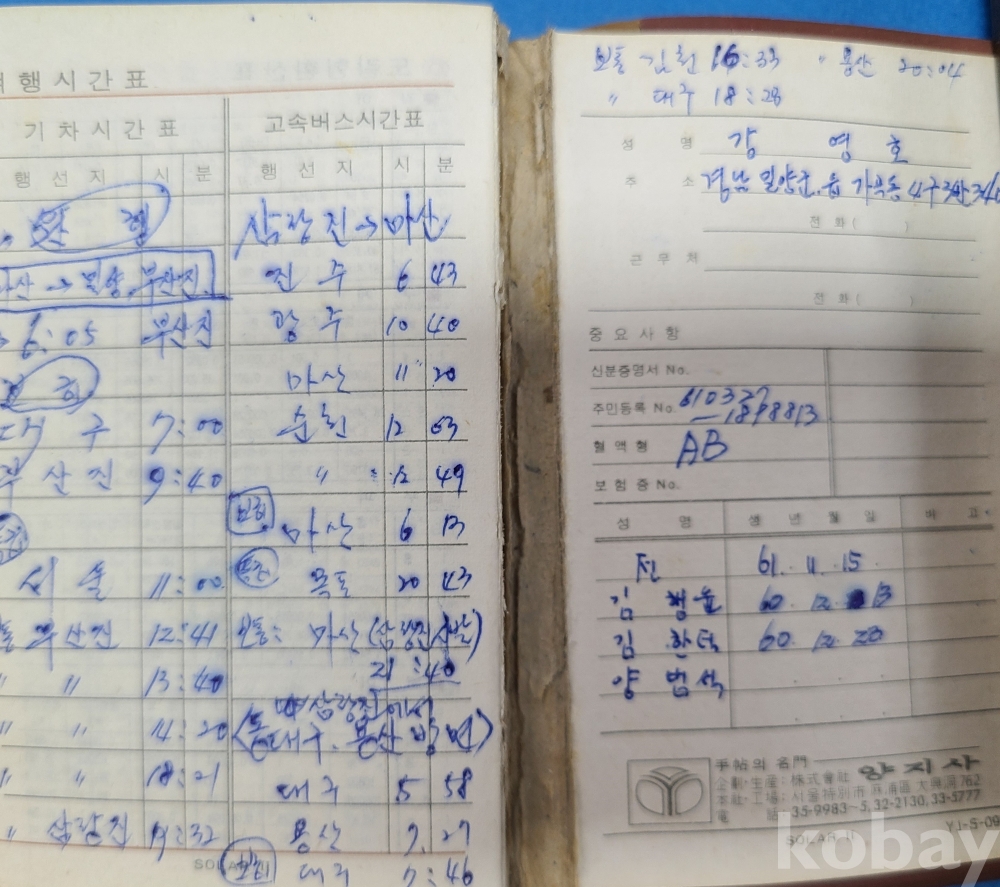 행시간표
기차시간표
행선지 시 분
6:05 부산진
대구 7:00
부산진 9:40
서울 11:00
부산진 12:41
〃 〃 13:40
〃 〃 14:20
〃 〃 18:21
〃 삼랑진 19:32
고속버스시간표
행선지 시 분
삼랑진→마산
진주 6 43
광주 10 40
마산 11 20
순천 12 03
〃 12 49
마산 6 13
목포 20 43
보통: 마산(삼랑진
21:40
삼랑진에서
대구. 용산
대구 5 58
용산 7. 27
대구 7:46
SOLAR II
보통 김천 16:33 〃 용산 20:04
〃 대구 18:28
성명 강영호
주소 경남 밀양군.읍 가곡동 4구
전화( )
근무처
전화( )
중요사항
신분증명서 No.
주민등록 No. 610327
혈액형 AB
보험증 No.
성명 생년월일 비고
전 61. 11. 15
김 60. 12. 13
김한덕 60 12 23
양범석
手帖의 名門
企劃·生産: 株式會社 양지사
本社·工場: 서울特別市 麻浦區 大興洞 762
電話 35-9983~5, 32-2130, 33-5777
SOLAR II
kobay